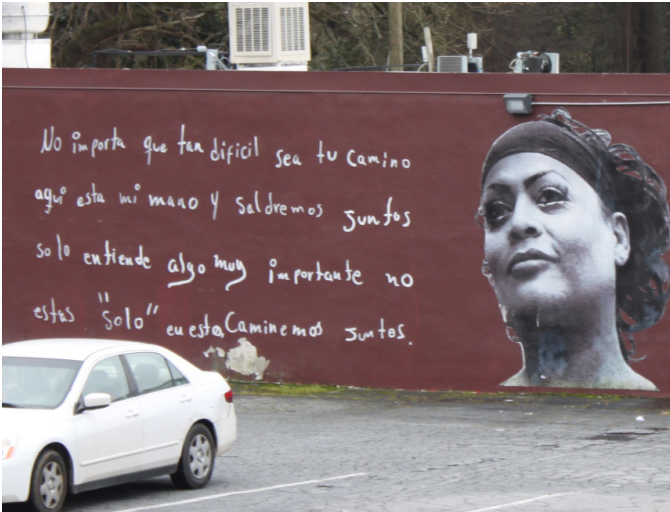 No importa que tan dificil sea tu camino
aqui esta mi mano y saldremos juntos
solo entiende algo muy importante no
estas "solo" en esto Caminemos juntos.